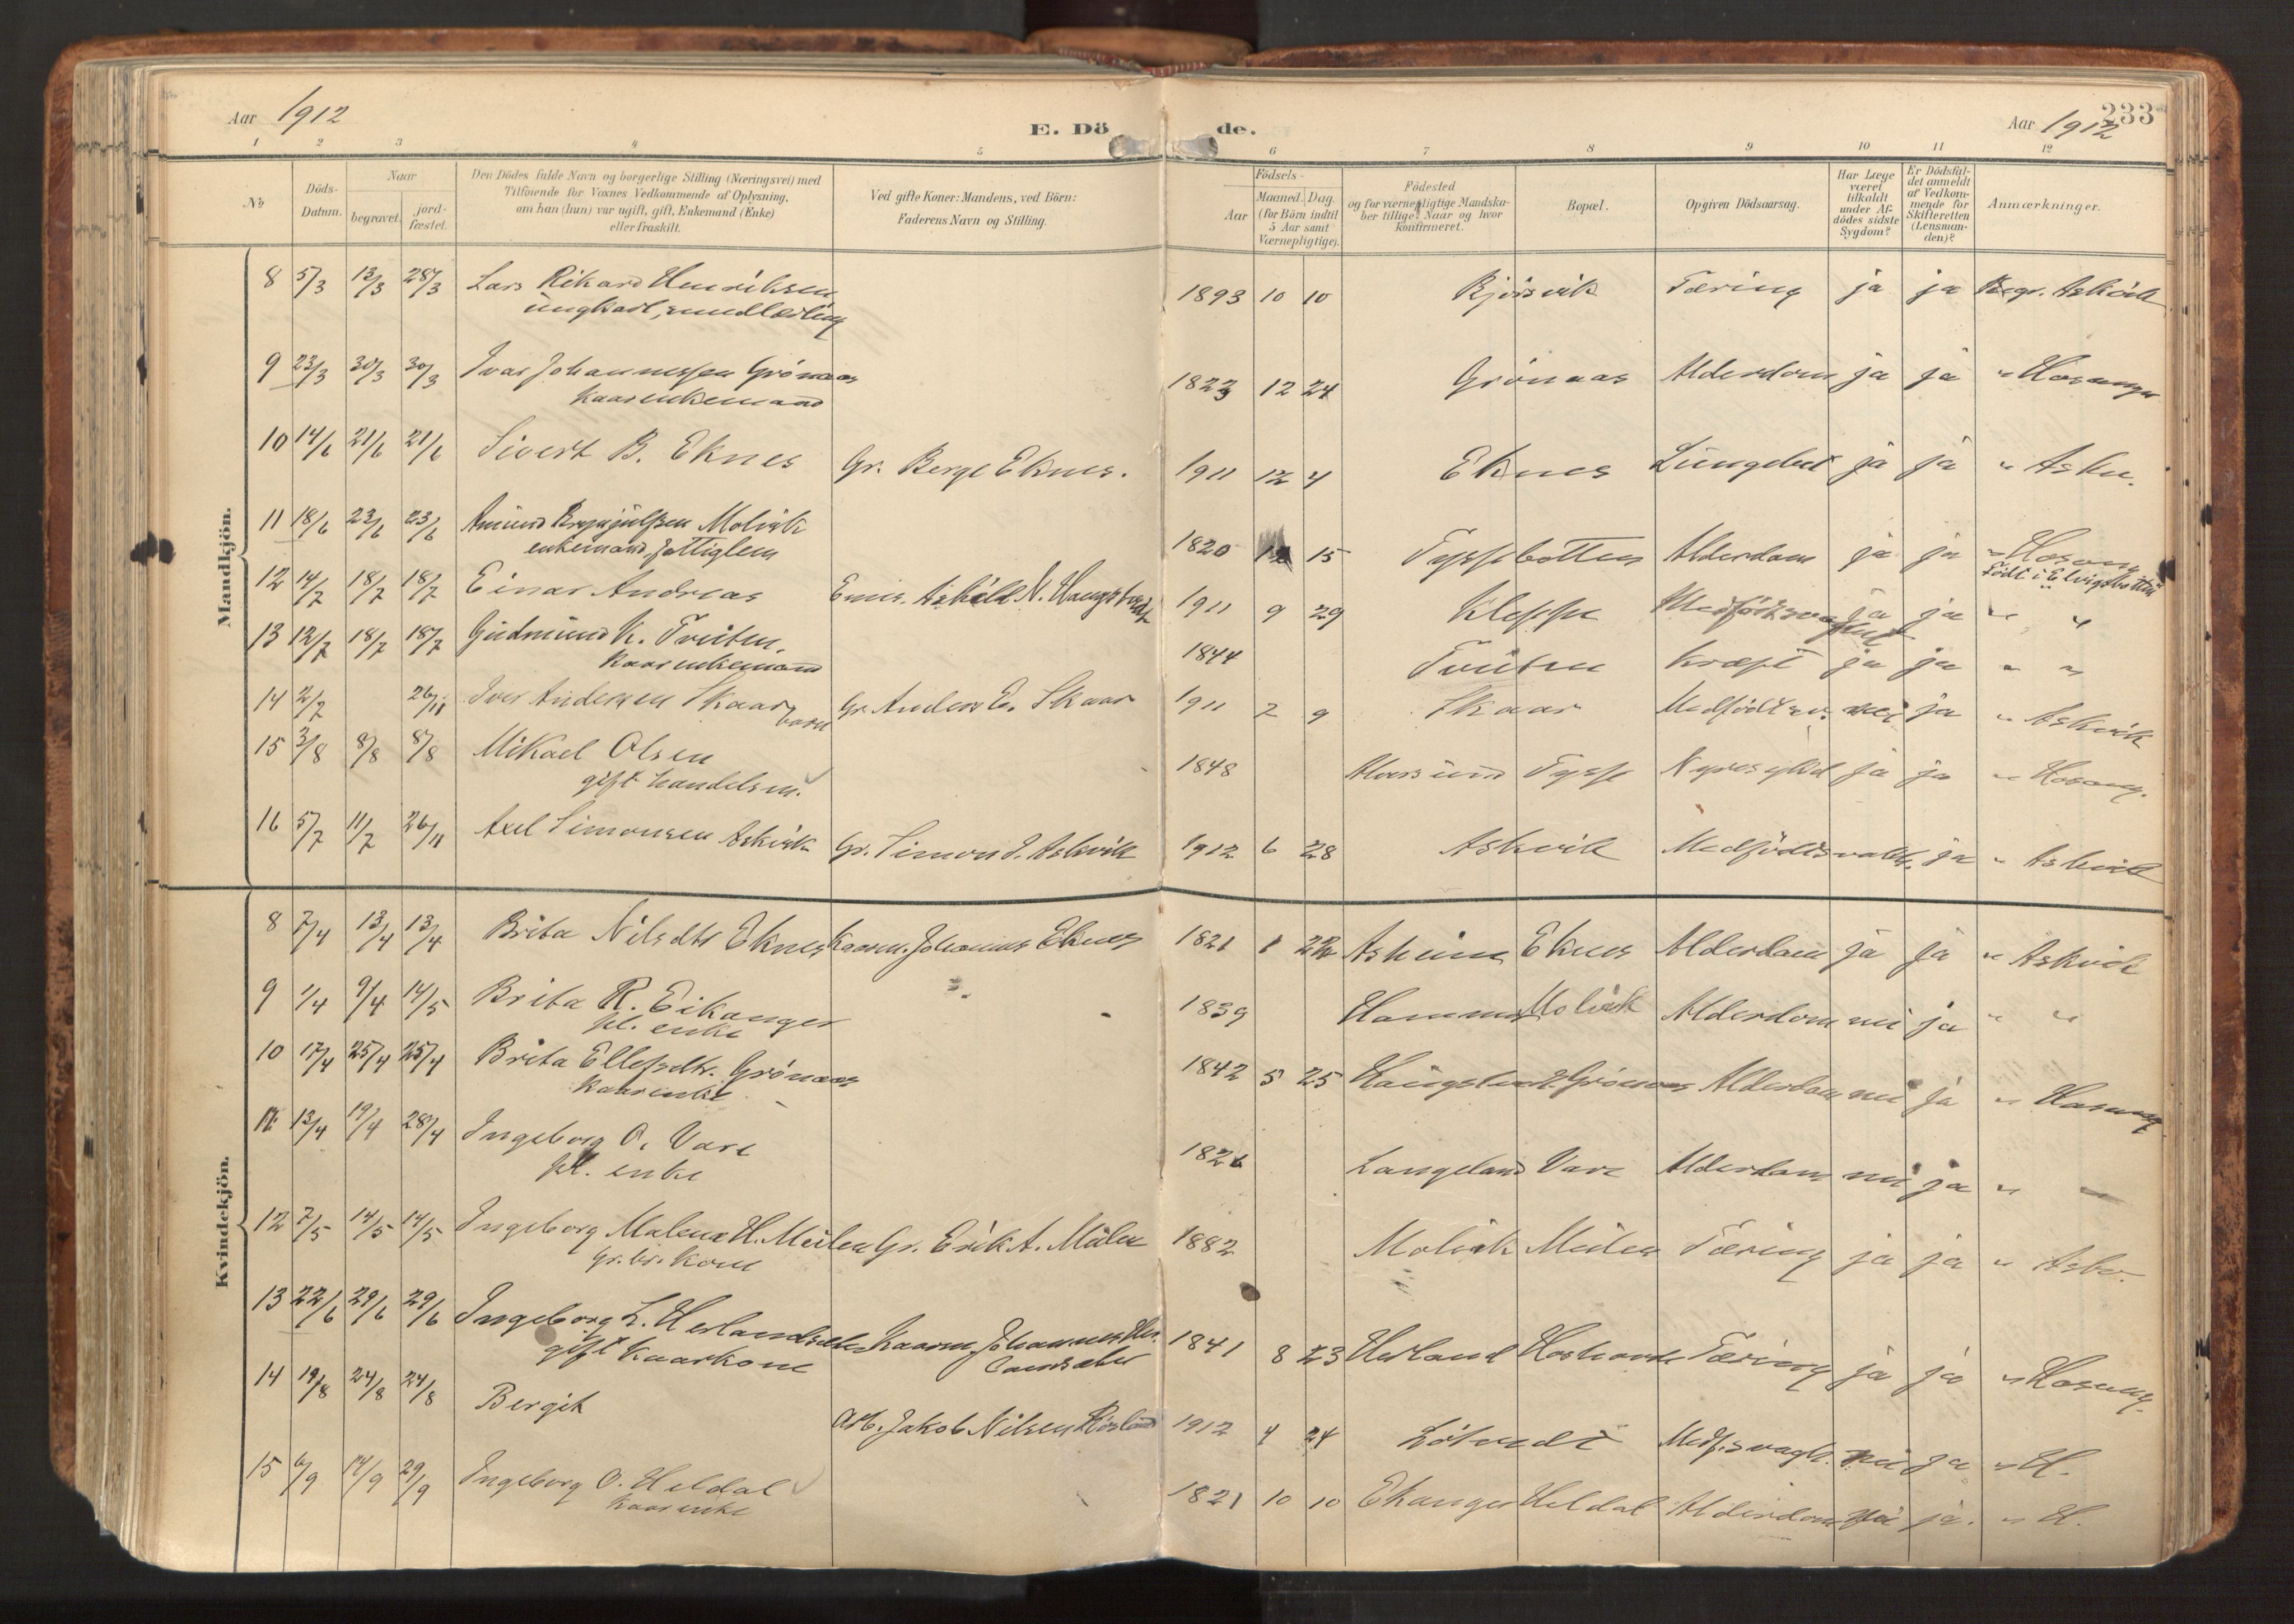 Aar 1912
E. Dö de.
Aar 1912
233
1 2 3 4 5 6 7 8 9 10 11 12
No
Döds-Datum.
Naar
begravet.
jord-fæstet.
Den Dödes fulde Navn og borgerlige Stilling (Næringsvei) med
Tilföiende for Voxnes Vedkommende af Oplysning,
om han (hun) var ugift, gift, Enkemand (Enke)
eller fraskilt.
Ved gifte Koner: Mandens, ved Börn:
Faderens Navn og Stilling.
Födsels-
Aar
Maaned. Dag.
(for Börn indtil
5 Aar samt
Værnepligtige).
Födested
og for værnepligtige Mandska-
ber tillige: Naar og hvor
konfirmeret.
Bopæl.
Opgiven Dödsaarsag.
Har Læge
været
tilkaldt
under Af-
dödes sidste
Sygdom?
Er Dödsfal-
det anmeldt
af Vedkom-
mende for
Skifteretten
(Lensman-
den)?
Anmærkninger.
Mandkjön.
8 5/3 13/3 28/3 Lars Rikard Henriksen 1893 10 10 Bjørsvik Tæring ja ja Begr. Askvik
ungkarl,
9 23/3 30/3 30/3 Ivar Johannessen Grönaas 1823 12 24 Grönaas Alderdom ja ja " Hosanger
kaarenkemand
10 14/6 21/6 21/6 Sivert B. Eknes Gr. Berge Eknes. 1911 12 4 Eknes Lungebet ja ja " Askv.
11 18/6 23/6 23/6 Amund Brynjulfsen Molvik 1820 15 Tyssebotten Alderdom ja ja " Hosang
enkemand, fattiglem
12 14/7 18/7 18/7 Einar Andreas Askild N. Haugstvedt 1911 9 29 Kleppe ja ja " "
13 12/7 18/7 18/7 Gudmund K. Tveiten. 1844 Tveiten Kræft ja ja " "
kaarenkemand
14 2/7 26/11 Iver Andersen Skaar Gr. Anders E. Skaar 1911 7 9 Skaar Medfödt sv. nei ja " Askvik
barn
15 3/8 8/8 8/8 Mikael Olsen 1848 Alversund Tysse Nyresygd ja ja " Hosang.
gift handelsm.
16 5/7 11/7 26/11 Axel Simonsen Askvik Gr. Simon J. Askvik 1912 6 28 Askvik Medfödt svakh. ja " Askvik
Kvindekjön.
8 7/4 13/4 13/4 Brita Nilsdtr Eknes Kaarm. Johannes Eknes 1821 1 22 Askeim Eknes Alderdom ja ja " Askvik
9 1/4 9/4 14/5 Brita R. Eikanger 1839 Hammer Molvik Alderdom nei ja " "
pl. enke
10 17/4 25/4 25/4 Brita Ellefsdtr. Grönaas 1842 5 25 Haugstvedt Grönaas Alderdom nei ja " Hosang
kaarenke
11 13/4 19/4 28/4 Ingeborg O. Vare 1826 Langeland Vare Alderdom nei ja " "
pl. enke
12 7/5 14/5 14/5 Ingeborg Malena H. Mielen Gr. Erik A. Mielen 1882 Molvik Mielen Tæring ja ja " Askv.
Gr. br. kone
13 22/6 29/6 29/6 Ingeborg L. Kaarm. Johannes 1841 8 23 Herland Tæring ja ja " Hosang.
gift kaarkone
14 19/8 24/8 24/8 Bergit Arb. Jakob Nilsen 1912 4 24 Lötvedt Medf. svagh. nei ja " H.
15 6/9 14/9 29/9 Ingeborg O. Heldal 1821 10 10 Ekanger Heldal Alderdom nei ja. " H.
kaarenke